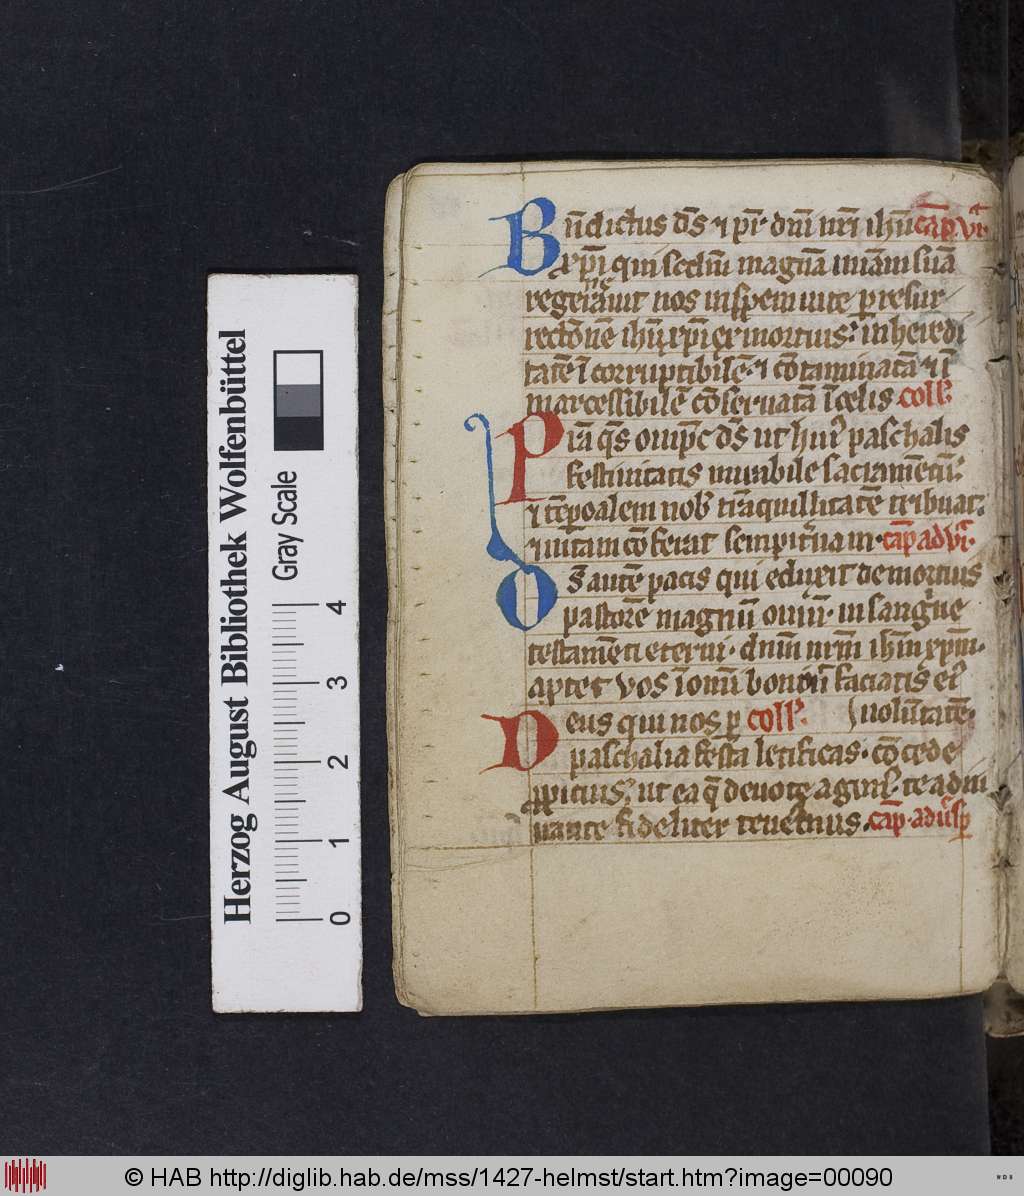 Bn̄dictus ds̄ ⁊ pr̄ dn̄i nr̄i ihū cap̄. vi.
xp̄i qui scdm̄ magnā miāmsuā
regenāuit nos inspem uite p resur
rectōnē ihū xp̄i ex mortuis. in heredi
tatē ī corruptibilē. ⁊ cōtaminatā ⁊ ī
marcessibilē cōseruatā ī celis. coll
Pr̄a qs̄ omp̄c ds̄ ut hui paschalis
festiuitatis mirabile sacramētū.
⁊ tēpoalem nob tr̄aquillitatē tribuat.
⁊ uitam cōferat sempit̄nam. cap̄ ad vi.
Ds̄ autē pacis qui eduxit de mortuis
pastorē magnū ouiū. in sangͥne
testamēti eterni. dnm̄ nrm̄ ihm̄ xpm̄.
aptet vos ī omī bono ut faciatis eiͥ
Deus qui nos p coll. uolūtatē.
paschalia festa letificas. cōcede
ꝓpicius. ut ea q̄ deuote agimꝰ. te adiu
uante fideliter teneamus. cap̄. ad vsp̄
Herzog August Bibliothek Wolfenbüttel
Gray Scale
0 1 2 3 4
© HAB http://diglib.hab.de/mss/1427-helmst/start.htm?image=00090